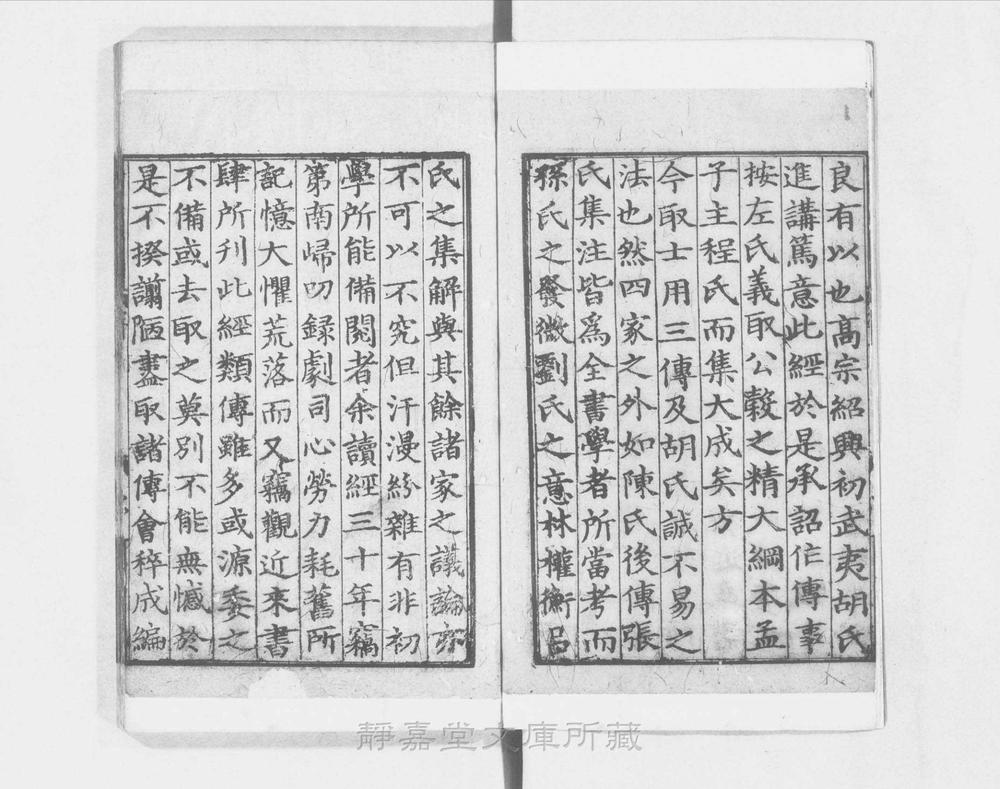 良有以也高宗紹興初武夷胡氏
進講篤意此經於是承詔作傳事
按左氏義取公穀之精大綱本孟
子主程氏而集大成矣方
今取士用三傳及胡氏誠不易之
法也然四家之外如陳氏後傳張
氏集注皆爲全書學者所當考而
孫氏之發微劉氏之意林權衡呂
氏之集解與其餘諸家之議論亦
不可以不究但汗漫紛雜有非初
學所能備閱者余讀經三十年竊
第南歸叨録劇司心勞力耗舊所
記憶大懼荒落而又竊觀近來書
肆所刊此經類傳雖多或源委之
不備或去取之莫別不能無憾於
是不揆謭陋盡取諸傳會稡成編
靜嘉堂文庫所藏